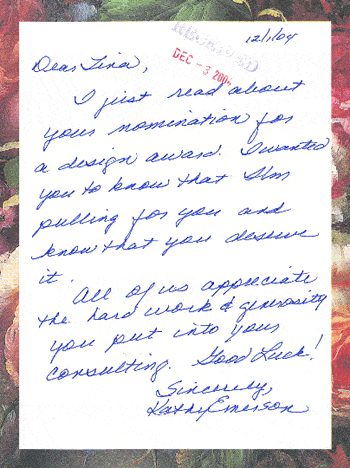 12/1/04
RECEIVED
DEC - 3 200
Dear Tina,
I just read about
your nomination for
a design award. I wanted
you to know that I'm
pulling for you and
know that you deserve
it.
All of us appreciate
the hard work & generosity
you put into your
consulting. Good Luck!
Sincerely,
Kathy Emerson